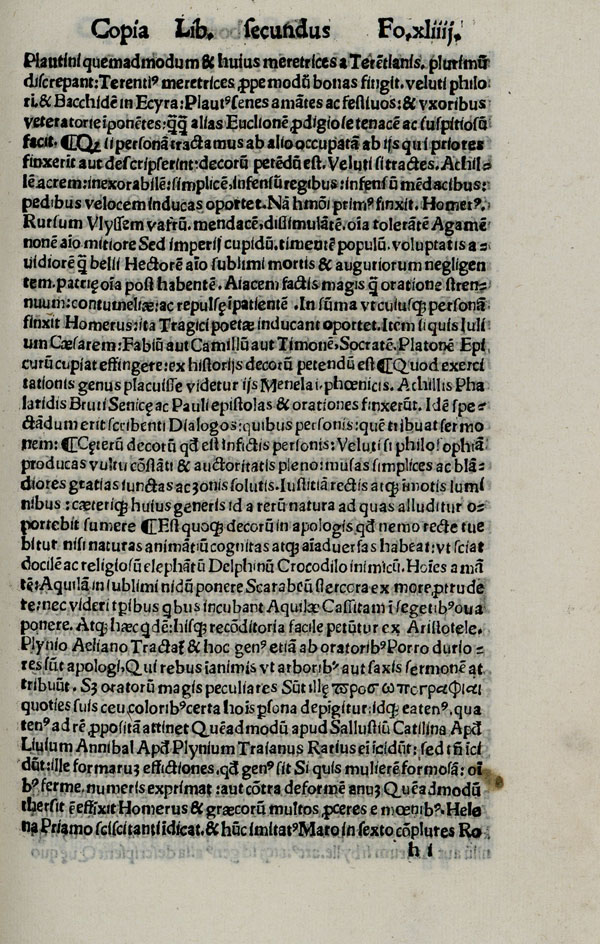 Copia Lib. secundus Fo.xliiij.
Plautini quemadmodum & huius meretrices a Terẽtianis. plurimũ
discrepant: Terentiꝰ meretrices ꝓpe modũ bonas fingit. veluti philo
ti. & Bacchidẽ in Ecyra: Plautꝰ senes amãtes ac festiuos: & vxoribus
veteratorie ĩponẽtes: ꝗ̃ꝗ̃ alias Euclionẽ ꝓdigiose tenacẽ ac suspitiosũ
facit. ¶ Qꝫ si personã tractamus ab alio occupatã ab ijs qui priores
finxerit aut descripserint: decorũ petẽdũ est. Veluti si tractes. Achil⸗
lẽ acrem: inexorabilẽ: simplicẽ. infensũ regibus: infensũ mẽdacibus:
pedibus velocem inducas oportet. Nã hmõi primꝰ finxit. Homerꝰ.
Rursum Vlyssem vafrũ. mendacẽ, dissimulãtẽ. oĩa tolerãtẽ Agamẽ
nonẽ aĩo mitiore Sed imperij cupidũ. timentẽ populũ. voluptatis a⸗
uidiorẽ ꝗ̃ belli Hectorẽ aĩo sublimi mortis & auguriorum negligen
tem. patrię oĩa post habentẽ. Aiacem factis magis ꝗ̃ oratione stren⸗
nuum: contumeliæ: ac repulsę ĩpatientẽ. In sũma vt cuiusqꝫ personã
finxit Homerus: ita Tragici poetæ inducant oportet. Item si quis Iuli
um Cæsarem: Fabiũ aut Camillũ aut Timonẽ, Socratẽ. Platonẽ Epi
curũ cupiat effingere: ex historijs decorũ petendũ est ¶ Quod exerci
tationis genus placuisse videtur ijs Menelai. phœnicis. Achillis Pha
laridis Bruti Senicę ac Pauli epistolas & orationes finxerũt. Idẽ spe⸗
ctãdum erit scribenti Dialogos: quibus personis: quẽ tribuat sermo
nem: ¶ Cęterũ decorũ qđ est in fictis personis: Veluti si philosophiã
producas vultu cõstãti & auctoritatis pleno: musas simplices ac blã⸗
diores gratias iunctas ac zonis solutis. Iustitiã rectis atqꝫ ĩmotis lumi
nibus: cæteriqꝫ huius generis id a rerũ natura ad quas alluditur o⸗
portebit sumere ¶ Est quoqꝫ decorũ in apologis qđ nemo recte tue
bitur nisi naturas animãtiũ cognitas atqꝫ aĩaduersas habeat: vt sciat
docilẽ ac religiosũ elephãtũ Delphinũ Crocodilo inimicũ. Hoĩes amã
tẽ: Aquilã in sublimi nidũ ponere Scarabeũ stercora ex more ꝓtrude
re: nec videri tꝑibus qbus incubant Aquilæ Cassitam ĩ segetibꝰ oua
ponere. Atqꝫ hæc qdẽ: hisqꝫ recõditoria facile petũtur ex Aristotele.
Plynio Aeliano Tractat̃ & hoc genꝰ etiã ab oratoribꝰ Porro durio⸗
res sũt apologi, Qui rebus ĩanimis vt arboribꝰ aut saxis sermonẽ at
tribuũt. Sꝫ oratorũ magis peculiares Sũt illę
quoties suis ceu coloribꝰ certa hoĩs ꝑsona depigitur: idqꝫ eatenꝰ, qua
tenꝰ ad rẽ ꝓpositã attinet Quẽadmodũ apud Sallustiũ Catilina Apđ
Liuium Annibal Apđ Plynium Traianus Rarius ei ĩcidũt: sed tñ ĩci
dũt: ille formarũ effictiones. qđ genꝰ sit Si quis mulierẽ formosã: oĩ
bꝰ ferme. numeris exprimat: aut cõtra deformẽ anũ Quẽadmodũ
thersitẽ effixit Homerus & græcorũ multos ꝓceres e mœnibꝰ. Hele
na Priamo sciscitanti ĩdicat. & hũc imitatꝰ Maro in sexto cõplutes Ro
h i